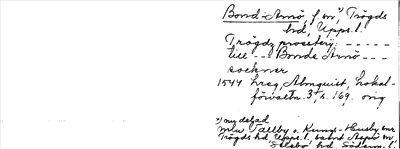 Bond-Arnö, f. en*) Trögds
hd, Upps. l.
Trögdz prosterij: - - - - -
till - - Bonde Arnö - - -
socknar
1544 hreg, Almquist, Lokal-
förvaltn. 3, s. 169. orig
*) nu delad
mlu Vallby o. Kungs-Husby snr
Trögds hd Upps. l. samt Aspö sn
Selebo hd. Söderm. l.